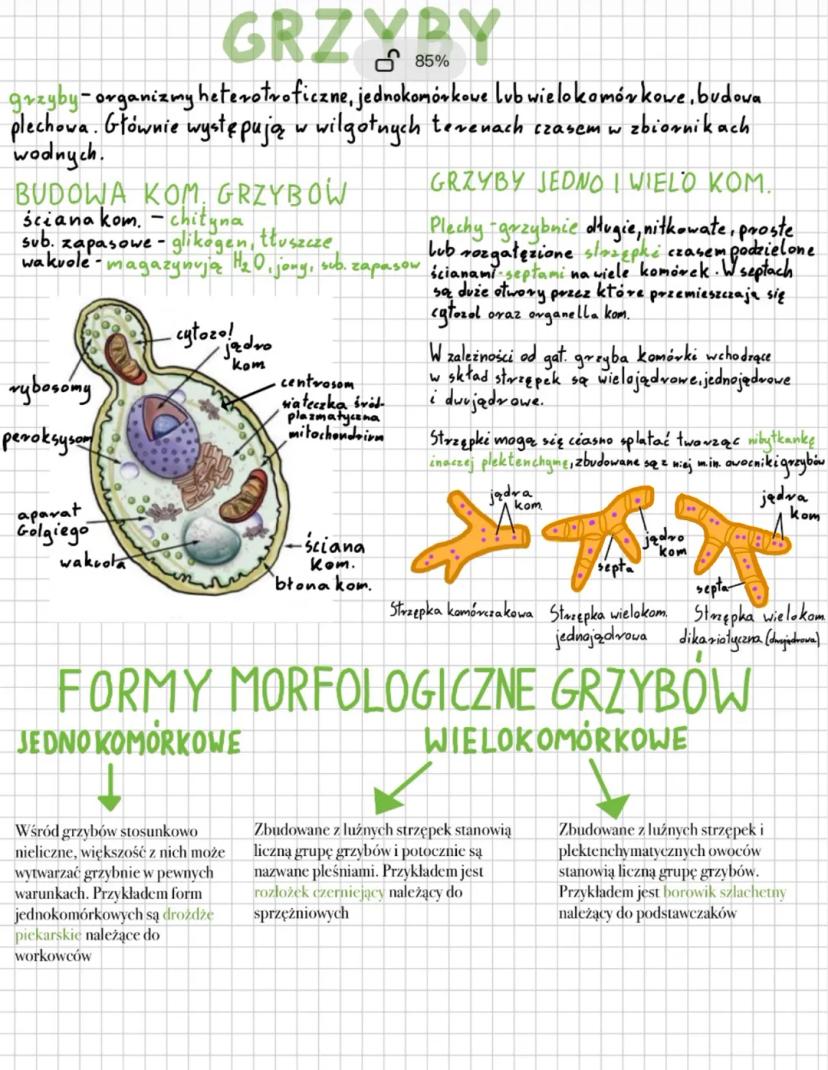 GRZYBY
85%
grzyby - organizmy heterotroficzne, jednokomórkowe lub wielokomórkowe, budowa
plechowa. Głównie występują w wilgotnych terenach czasem w zbiornikach
wodnych.
BUDOWA KOM. GRZYBÓW
ściana kom. - chityna
sub. zapasowe - glikogen, tłuszcze
wakuole - magazynują H2O, jony, sub. zapasow
cytozol
jądro
kom
rybosomy
centrosom
siateczka śród-
plazmatyczna
mitochondrium
peroksysom
aparat
Golgiego
wakuola
ściana
kom.
błona kom.
GRZYBY JEDNO I WIELO KOM.
Plechy - grzybnie długie, nitkowate, proste
lub rozgałęzione strzępki czasem podzielone
ścianami - septami na wiele komórek. W septach
są duże otwory przez które przemieszczają się
cytozol oraz organella kom.
W zależności od gat. grzyba komórki wchodzące
w skład strzępek są wielojądrowe, jednojądrowe
i dwujądrowe.
Strzępki mogą się ciasno splatać tworząc nibytkankę
inaczej plektenchymę, zbudowane są z niej m.in. owocniki grzybów
jądra
kom
jądro
kom
septa
jądra
kom
septa
Strzępka komórczakowa
Strzępka wielokom.
jednojądrowa
Strzępka wielokom.
dikariotyczna (dwujądrowa)
FORMY MORFOLOGICZNE GRZYBÓW
JEDNOKOMÓRKOWE
WIELOKOMÓRKOWE
Wśród grzybów stosunkowo
nieliczne, większość z nich może
wytwarzać grzybnie w pewnych
warunkach. Przykładem form
jednokomórkowych są drożdże
piekarskie należące do
workowców
Zbudowane z luźnych strzępek stanowią
liczną grupę grzybów i potocznie są
nazwane pleśniami. Przykładem jest
rozłożek czerniejący należący do
sprzężniowych
Zbudowane z luźnych strzępek i
plektenchymatycznych owoców
stanowią liczną grupę grzybów.
Przykładem jest borowik szlachetny
należący do podstawczaków